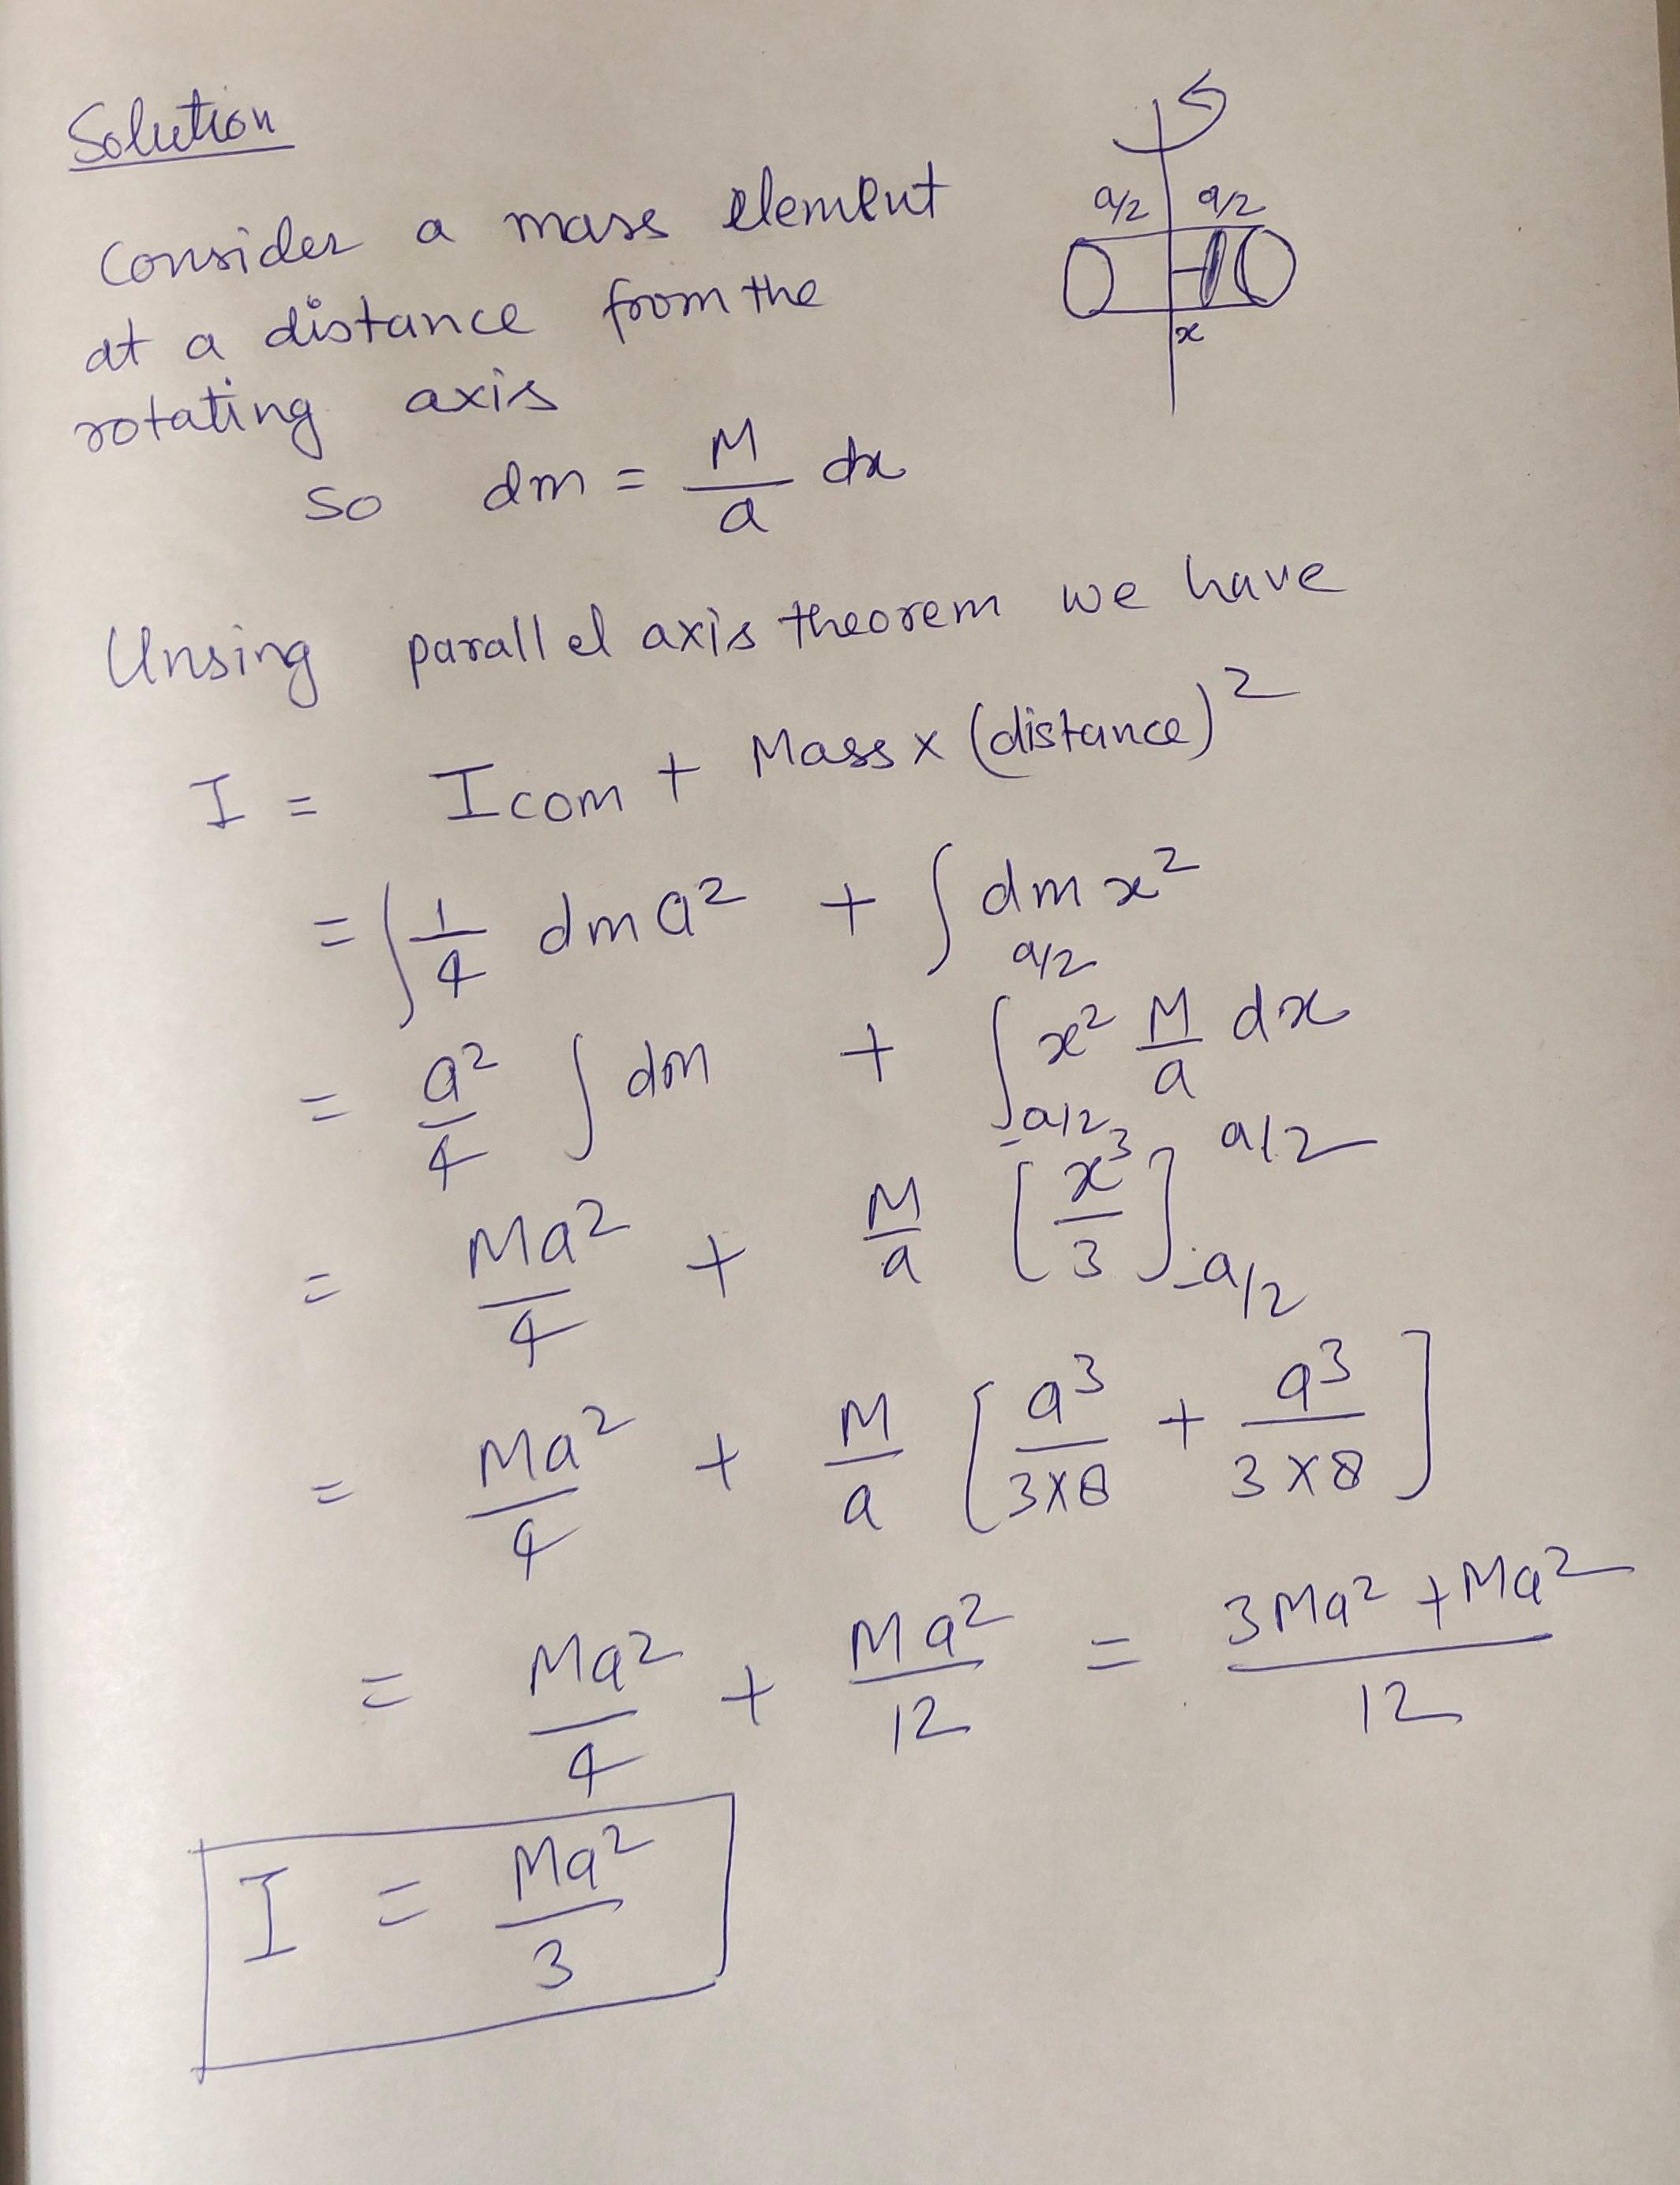 Solution
Consider a mass element
at a distance from the
rotating axis
a/2 a/2
x
So dm = M/a dx
Unsing parallel axis theorem we have
I = Icom + Mass x (distance)²
= ∫ 1/4 dm a² + ∫ dm x²
= a²/4 ∫ dm + ∫_{-a/2}^{a/2} x² M/a dx
= Ma²/4 + M/a [x³/3]_{-a/2}^{a/2}
= Ma²/4 + M/a [a³/3×8 + a³/3×8]
= Ma²/4 + Ma²/12 = 3Ma² + Ma²/12
I = Ma²/3